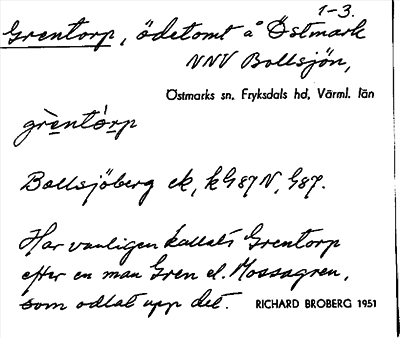 1-3.
Grentorp, ödetomt å Östmark
VNV Bollsjön,
Östmarks sn, Fryksdals hd, Värml. län
grèntórp
Bollsjöberg ek, kG87N, G87.
Har vanligen kallats Grentorp
efter en man Gren el. Mossagren,
som odlat upp det. RICHARD BROBERG 1951